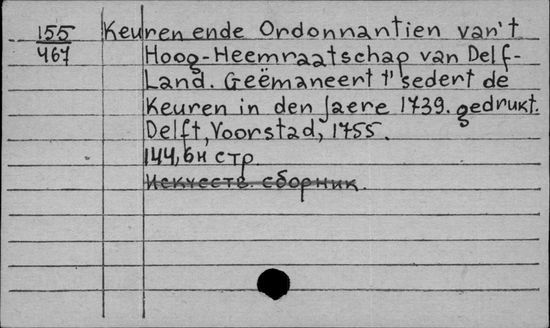 155
467
Keuren ende Ordonnantien van't
Hoog-Heemraatschap van Delf-
Land. Geëmaneert t' sedert de
Keuren in den Jaere 1739. gedrukt.
Delft, Voorstad, 1755.
144, 6н стр.
Искчеств. сборник.